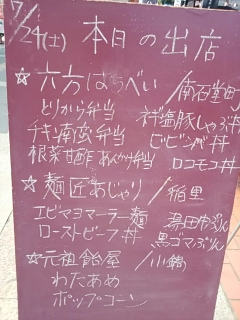 7/24(土) 本日の出店
☆六方はちべい/南石堂町
とりから弁当 ネギ塩豚しゃぶ丼
チキン南蛮弁当 ビビンバ丼
根菜甘酢あんかけ弁当 ロコモコ丼
☆麺匠あじゃり/稲里
エビマヨマーラー麺 湯田中ぷりん
ローストビーフ丼 黒ゴマぷりん
☆元祖飴屋/小鍋
わたあめ
ポップコーン